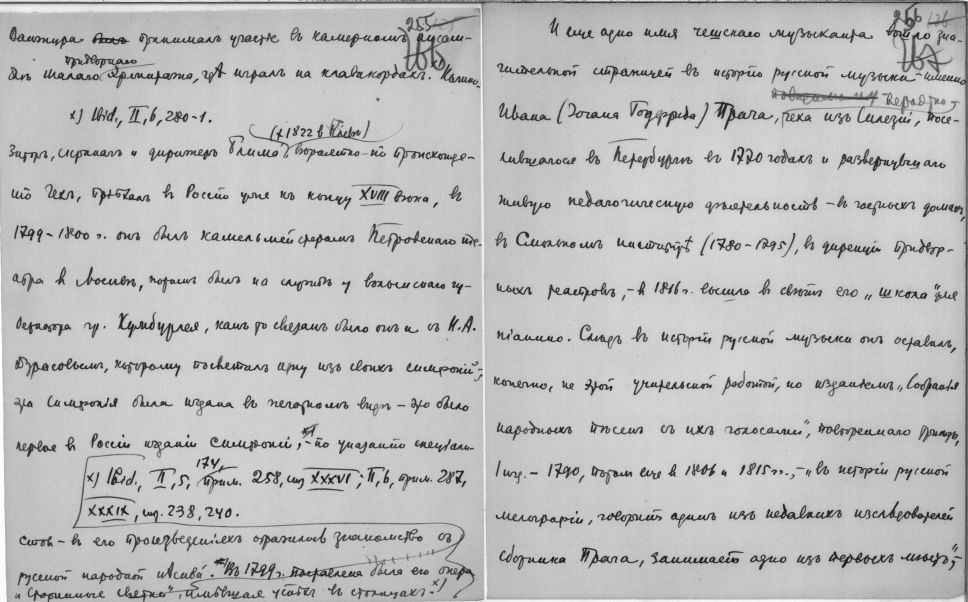 255
166
принималъ участіе въ камерномъ
придворнаго
Эрмитажа, гдѣ игралъ на клавикордахъ.
x) Ibid., II, 6, 280-1.
(x 1822 въ Кіевѣ)
и дирижеръ Блима, вѣроятно по происхожде-
нію чехъ, пріѣхалъ въ Россію уже къ концу XVIII вѣка, въ
1799-1800 г. онъ былъ капельмейстеромъ Петровскаго те-
атра въ Москвѣ, потомъ былъ на службѣ у волынскаго гу-
бернатора гр. Кумбурлея, какъ то связанъ былъ онъ и съ Н.А.
которому посвятилъ одну изъ своихъ симфоній;
эта симфонія была издана въ печатномъ видѣ – это было
первое въ Россіи изданіе симфоній, – по указанію спеціали-
x) Ibid., II, 5, 174, прим. 258, стр XXXVI; II, 6, прим. 287,
XXXIX, стр. 238, 240.
стовъ – въ его произведеніяхъ отразилось знакомство съ
русской народной пѣсней. Въ 1799 г. поставлена была его опера
„Старинные святки", имѣвшая успѣхъ въ столицахъ. x)
256
167
И еще одно имя чешскаго музыканта вошло зна-
чительной страницей въ исторію русской музыки – именно
вѣроятно,
Ивана (Іогана Готфрида) Прача, чеха изъ Силезіи, посе-
лившагося въ Петербургѣ въ 1770 годахъ и развернувшаго
живую педагогическую дѣятельность – въ частныхъ домахъ,
въ Смольномъ институтѣ (1780-1795), въ дирекціи придвор-
ныхъ театровъ, – въ 1816 г. вышла въ свѣтъ его „школа" для
піанино. Слѣдъ въ исторіи русской музыки онъ оставилъ,
конечно, не этой учительской работой, но изданіемъ „Собранія
народныхъ пѣсенъ съ ихъ голосами", повтореннаго трижды,
I изд. – 1790, потомъ еще въ 1806 и 1815 гг., – „въ исторіи русской
мелографіи, говоритъ одинъ изъ недавнихъ изслѣдователей
сборника Прача, занимаетъ одно изъ первыхъ мѣстъ",